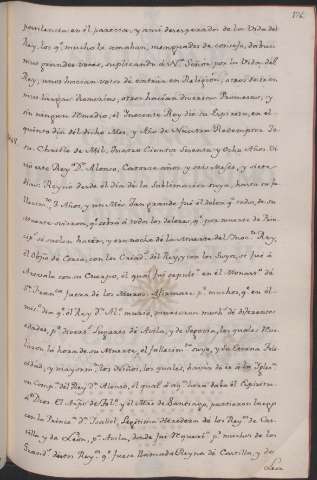 pestilencia en él parecía, y así desesperados de la Vida del
Rey, los q.e mucho le amaban, menguados de consejo, daban
mui grandes voces, suplicando á N.ro Señor por la Vida del
Rey, unos hacían votos de entrar en Religion, otros de ir en
mui largas Romerías, otros hacían diversas Promesas, y
sin ningun Remedio, el Inocente Rey dió su Espíritu, en el
quinto dia del dicho Mes, y Año de Nuestro Redemptor Je-
su Christo de Mil, Quatro Cientos Sesenta y Ocho Años. Vi
vió este Rey D.n Alonso, Catorce años, y seis Meses, y siete
dias: Reynó desde el dia de la Sublimacion suya, hasta su fa
llecim.to 3 Años, y un Mes. Tan grande fué el dolor q.e todos, de su
Muerte huvieron, q.e sobró á todos los dolores, q.e por muerte de Prin-
cip.e se suelen haver, y esa noche de la Muerte del Inoc.te Rey,
el Obispo de Coria, con los Criad.s del Rey, y con los Suyos, se fué á
Arevalo con su Cuerpo, el qual fué sepult.o en el Monast.o de
S.n Fran.co fuera de los Muros. Afirmase p.r muchos, q.e en él
mis.o dia q.e el Rey D.n Al.o murió, murieron much.s de diferentes
edades, p.r diversos Lugares de Avila, y de Segovia, los quales
la hora de su Muerte, el fallecim.to suyo, y su Eterna Feli-
cidad, y mayorm.te los Niños, los quales, havian de ir á la Igles.a
en Comp.a del Rey D.n Alonso, el qual á aq.a hora daba él Espíritu
á Dios. El Arzp.o de Tol.o y el Mtre de Santiago, partieron luego
con la Princ.a D.a Isabel, Legítima Heredera de los Rey.s de Cas-
tilla y de Leon, p.a Avila, donde fué Requerid.a p.r muchos de los
Grand.s destos Rey.s q.e fuese llamada Reyna de Castilla y de
Leon